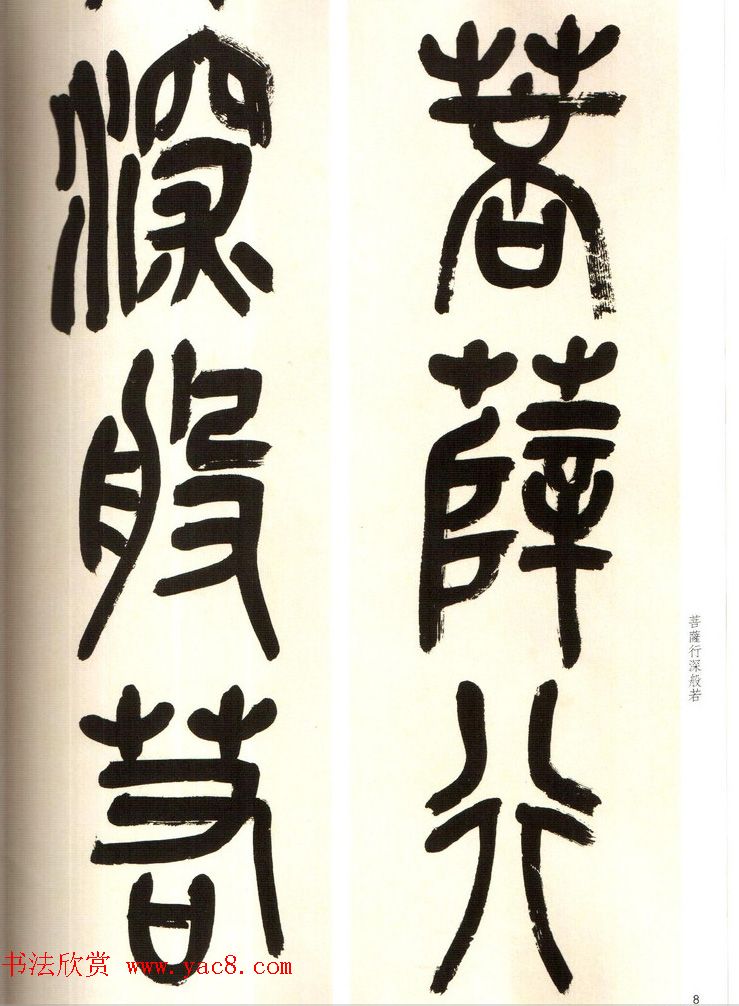 菩薩行
深般若
菩薩行深般若
书法欣赏 www.yac8.com
8